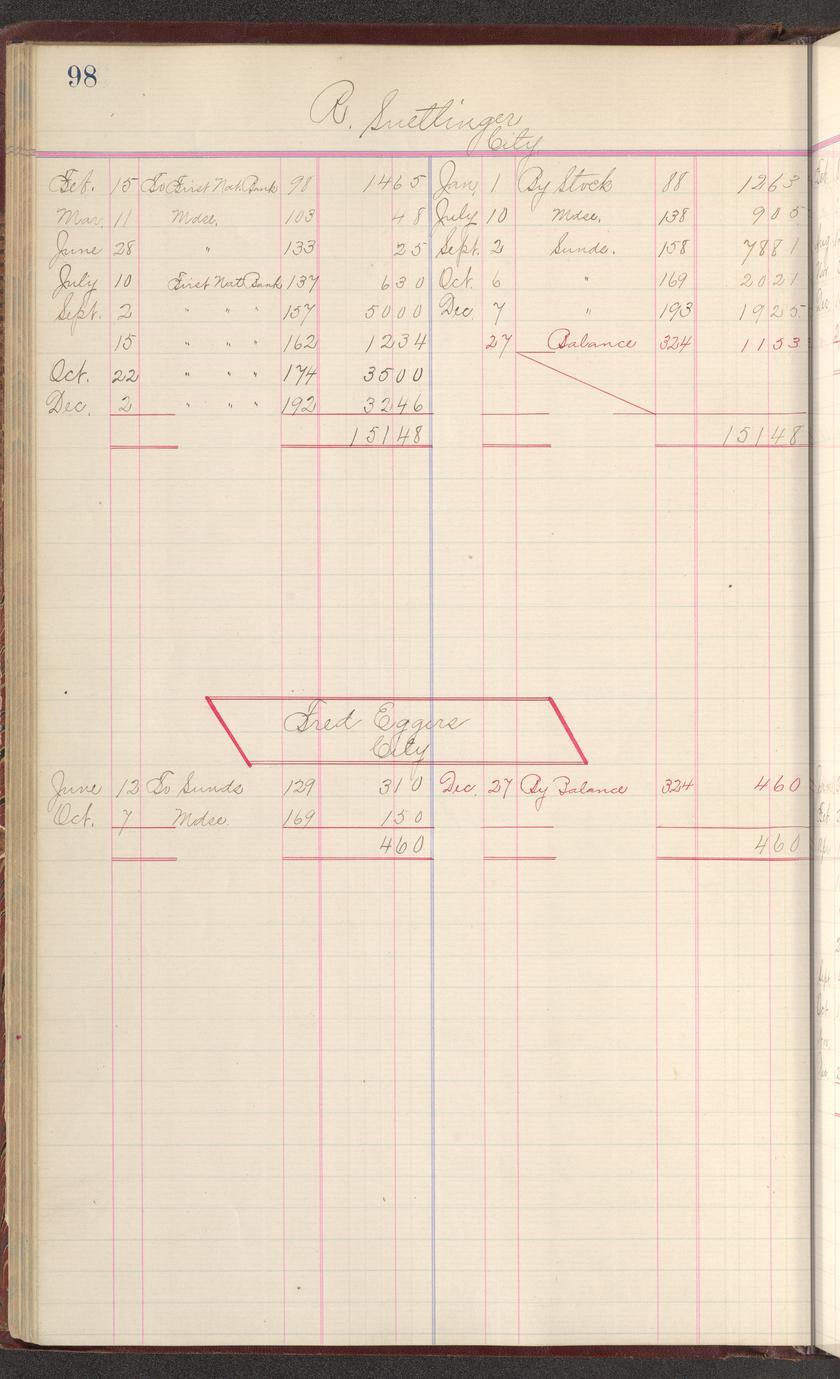 98
R. Suetlinger
City
Feb. 15 To First Nat. Bank 98 1465 Jan. 1 By Stock 88 1263
Mar. 11 Mdse. 103 48 July 10 Mdse. 138 905
June 28 " 133 25 Sept. 2 Sunds. 158 7881
July 10 First Nat. Bank 137 630 Oct. 6 " 169 2021
Sept. 2 " " " 157 5000 Dec. 7 " 193 1925
15 " " " 162 1234 27 Balance 324 1153
Oct. 22 " " " 174 3500
Dec. 2 " " " 192 3246
15148 15148
Fred Eggers
City
June 12 To Sunds 129 310 Dec. 27 By Balance 324 460
Oct. 7 Mdse. 169 150
460 460